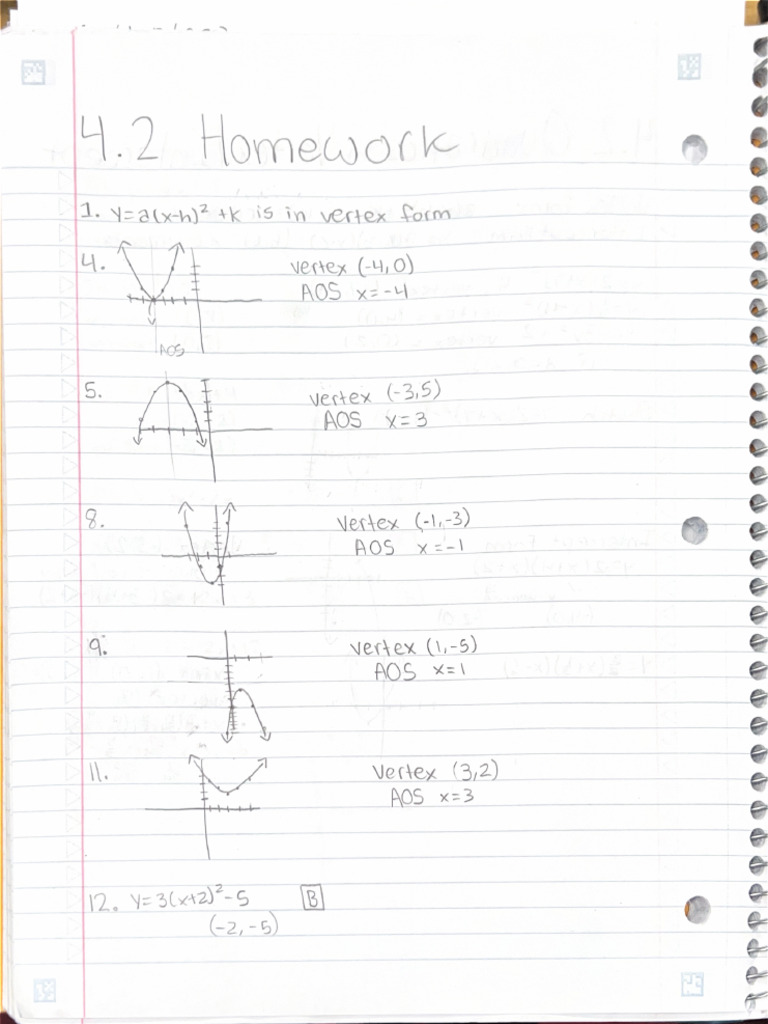 4.2 Homework
1. y=a(x-h)² +k is in vertex form
4.
vertex (-4,0)
AOS x=-4
AOS
5.
vertex (-3,5)
AOS x=3
8.
vertex (-1,-3)
AOS x=-1
9.
vertex (1,-5)
AOS x=1
11.
vertex (3,2)
AOS x=3
12. y=3(x+2)²-5 B
(-2,-5)